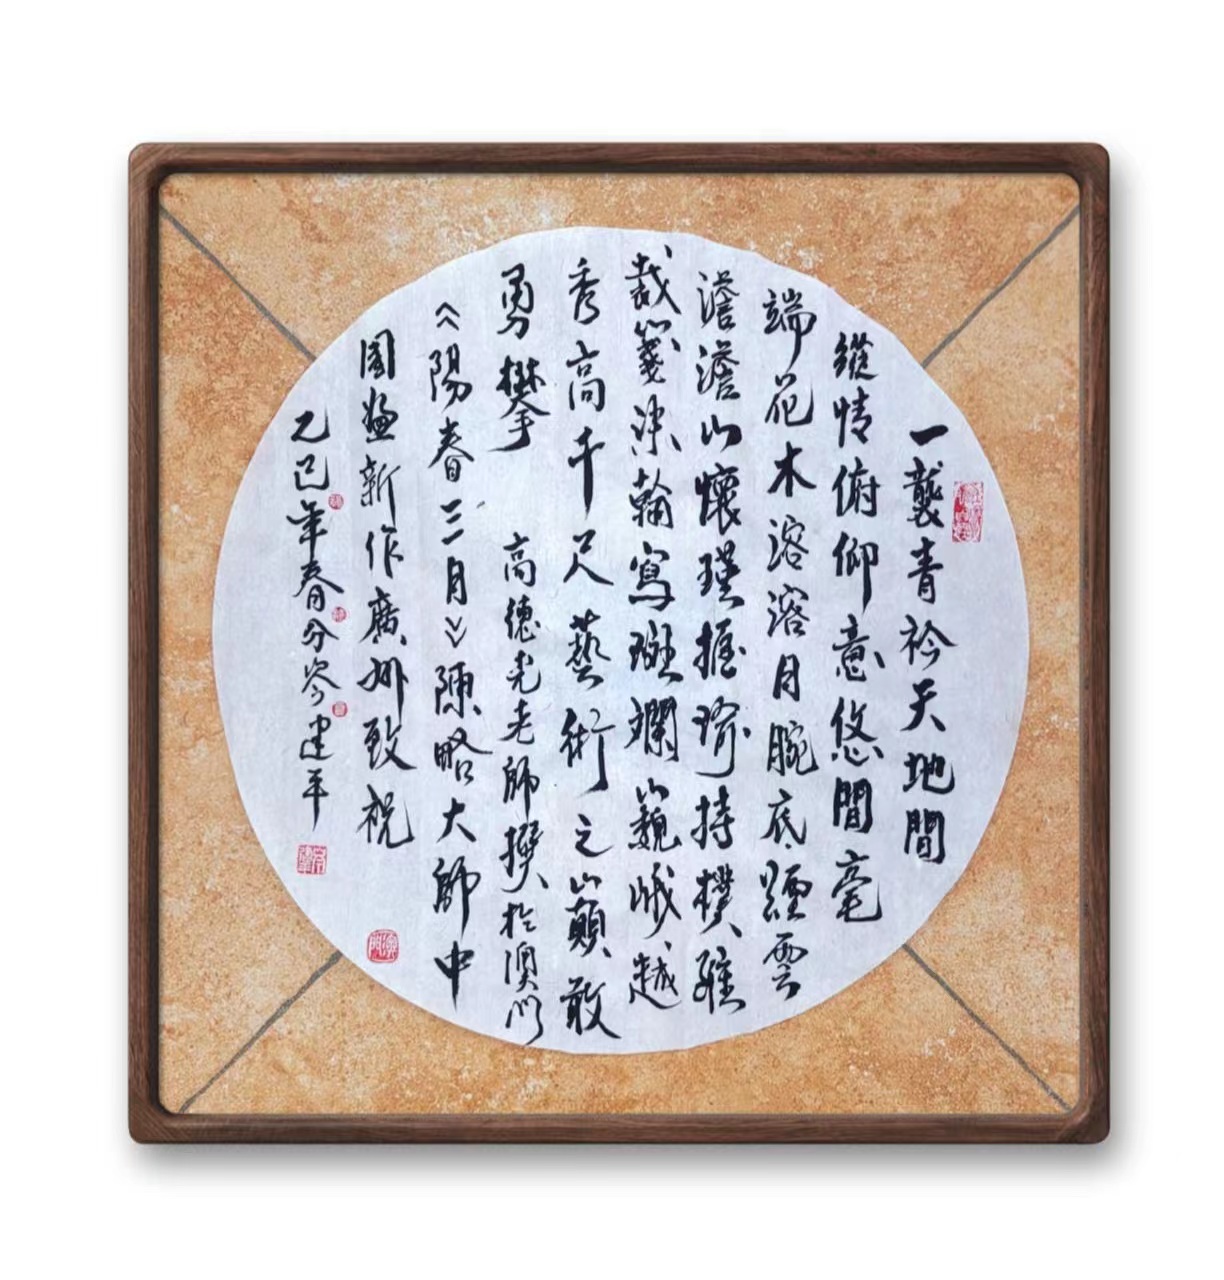 一襲青衿天地間
縱情俯仰意悠間毫
端花木溶溶月腕底煙雲
澹澹山懷瑾握瑜持樸雅
裁箋染翰寫斑斕巍峨越
秀高千尺藝術之巔敢
勇攀 高德光老師撰於澳門
《陽春三月》陳略大師中
國畫新作廣州致祝
乙巳年春分岑建平